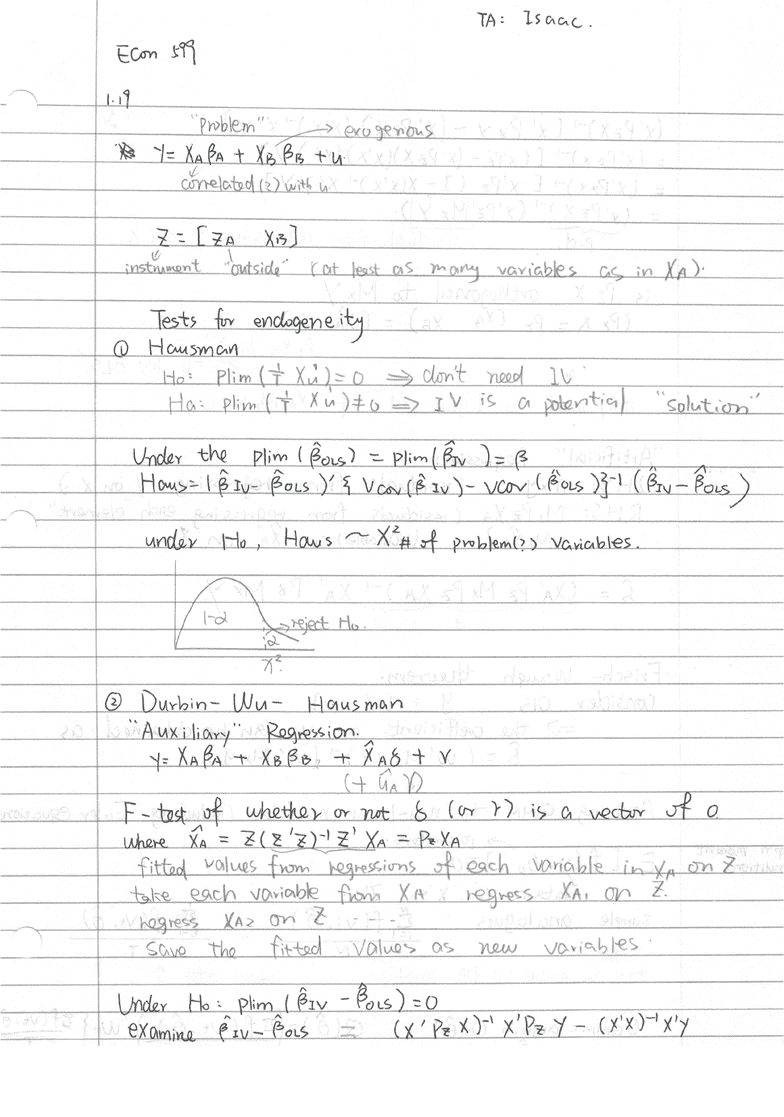 TA: Isaac.
Econ 599
1.19
"Problem" → exogenous
Y = XAβA + XBβB + u
correlated(?) with u
Z = [ZA XB]
instrument "outside" (at least as many variables as in XA).
Tests for endogeneity
① Hausman
Ho: Plim (1/T X'u) = 0 ⇒ don't need IV
Ha: plim (1/T X'u) ≠ 0 ⇒ IV is a potential "solution"
Under the plim (β̂OLS) = plim(β̂IV) = β
Haus = (β̂IV - β̂OLS)' { Vcov(β̂IV) - Vcov(β̂OLS)}⁻¹ (β̂IV - β̂OLS)
under Ho, Haus ~ X² # of problem(?) variables.
1-α
α → reject Ho.
X²
② Durbin-Wu-Hausman
"Auxiliary" Regression.
y = XAβA + XBβB + X̂Aδ + v
(+ ûA γ)
F-test of whether or not δ (or γ) is a vector of 0
where X̂A = Z(Z'Z)⁻¹Z' XA = PZXA
fitted values from regressions of each variable in XA on Z
take each variable from XA regress XA1 on Z.
regress XA2 on Z
save the fitted values as new variables.
Under Ho: plim (β̂IV - β̂OLS) = 0
examine β̂IV - β̂OLS = (X'PZX)⁻¹X'PZY - (X'X)⁻¹X'Y